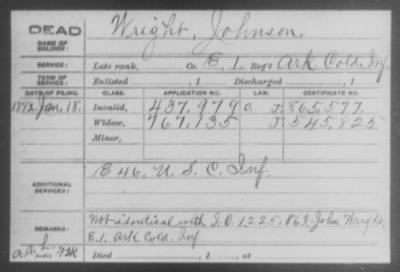 DEAD
NAME OF SOLDIER: Wright, Johnson.
SERVICE: Late rank, Co. E, 1. Reg't Ark Cold. Inf
TERM OF SERVICE: Enlisted , 1 Discharged , 1
DATE OF FILING. CLASS. APPLICATION NO. LAW. CERTIFICATE NO.
1882 Jan. 18. Invalid, 437,979 O. J. 865,577.
Widow, 767,135 J. 545,825
Minor,
ADDITIONAL SERVICES: E 46, U. S. C. Inf.
REMARKS: Not identical with I.O. 1,225,863. John Wright,
E. 1, Ark Cold. Inf.
Died , 1 , at